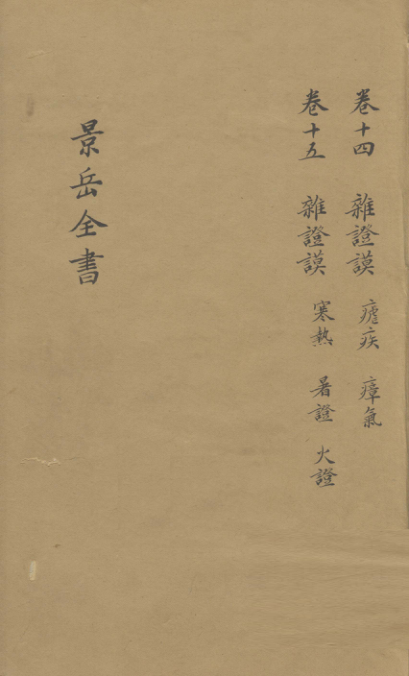 卷十四 雜證謨 瘧疾 瘴氣
卷十五 雜證謨 寒熱 暑證 火證
景岳全書